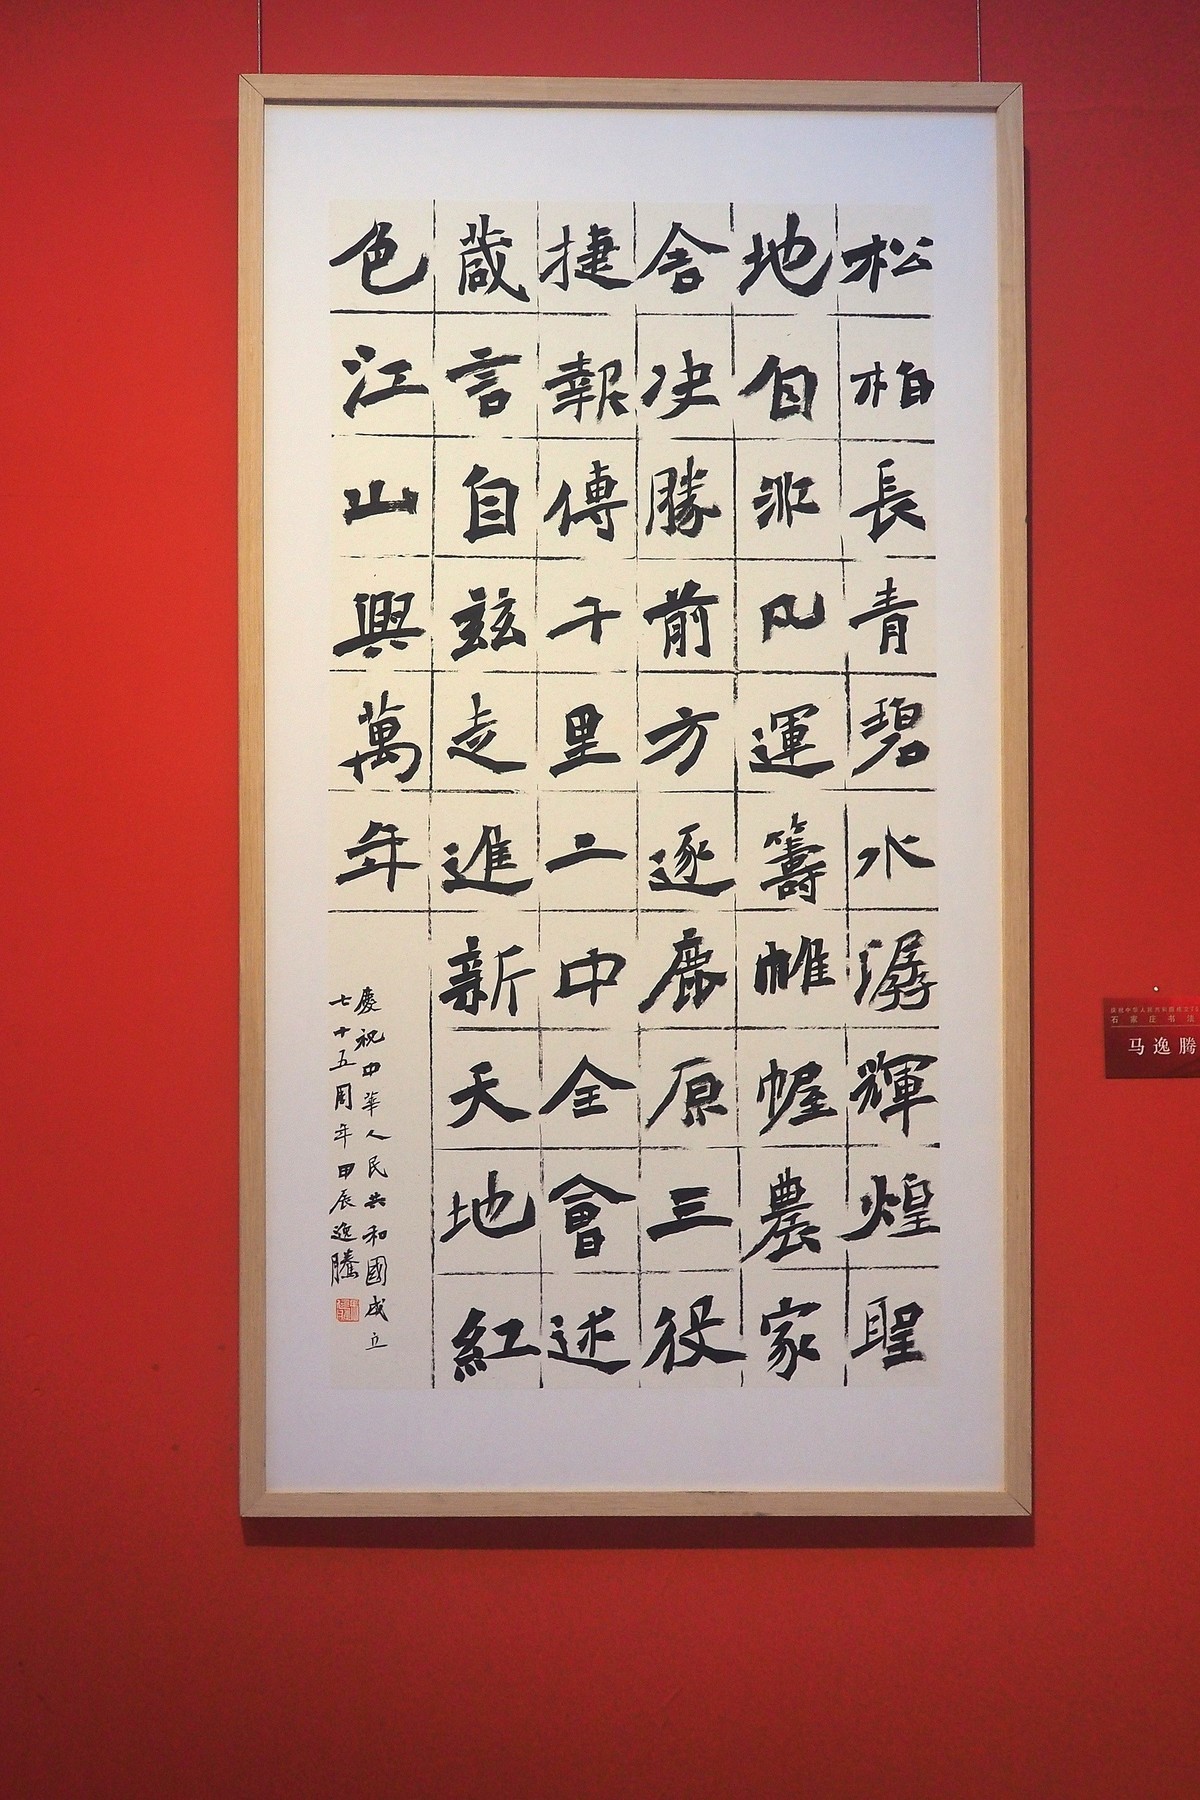 松柏長青碧水潺輝煌聖
地自非凡運籌帷幄農家
舍决勝前方逐鹿原三役
捷報傳千里二中全會述
葴言自兹走進新天地紅
色江山興萬年
慶祝中華人民共和國成立
七十五周年甲辰逸騰
石家庄书法
马逸腾